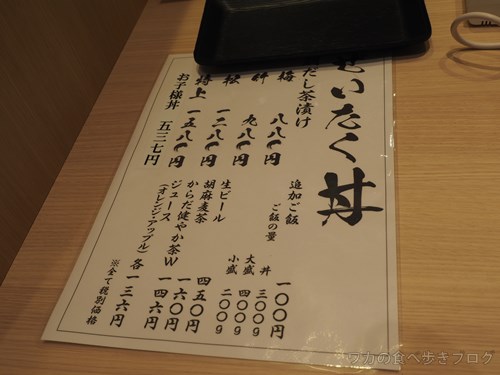 ぜいたく丼
だし茶漬け
梅 八八〇円
竹 九八〇円
松 一二八〇円
特上 一五八〇円
お子様丼 五三七円
追加ご飯 一〇〇円
ご飯の量
丼 三〇〇g
大盛 四〇〇g
小盛 二〇〇g
生ビール 四五〇円
胡麻麦茶 一六〇円
からだ健やか茶W 一四六円
ジュース
(オレンジ・アップル) 各一三六円
※全て税別価格
うかの食べ歩きブログ